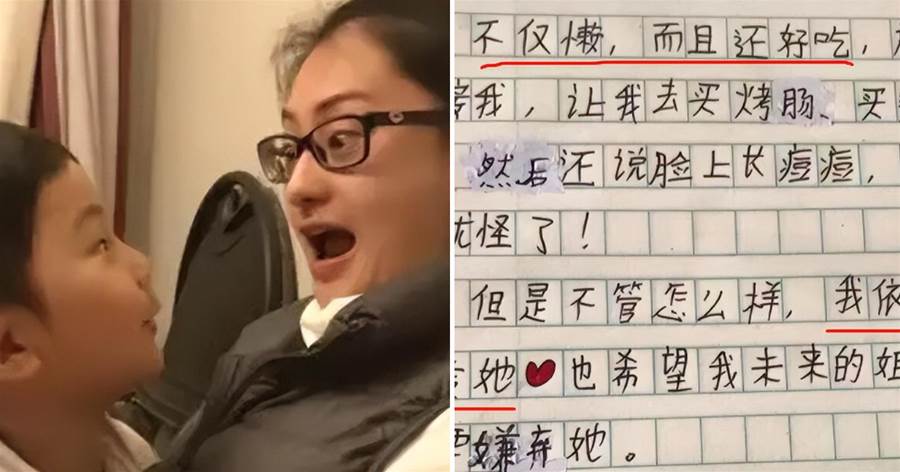 不仅懒，而且还好吃，
我，让我去买烤肠、买
然后还说脸上长痘痘，
怪了！
但是不管怎么样，我依
她❤也希望我未来的姐
嫌弃她。